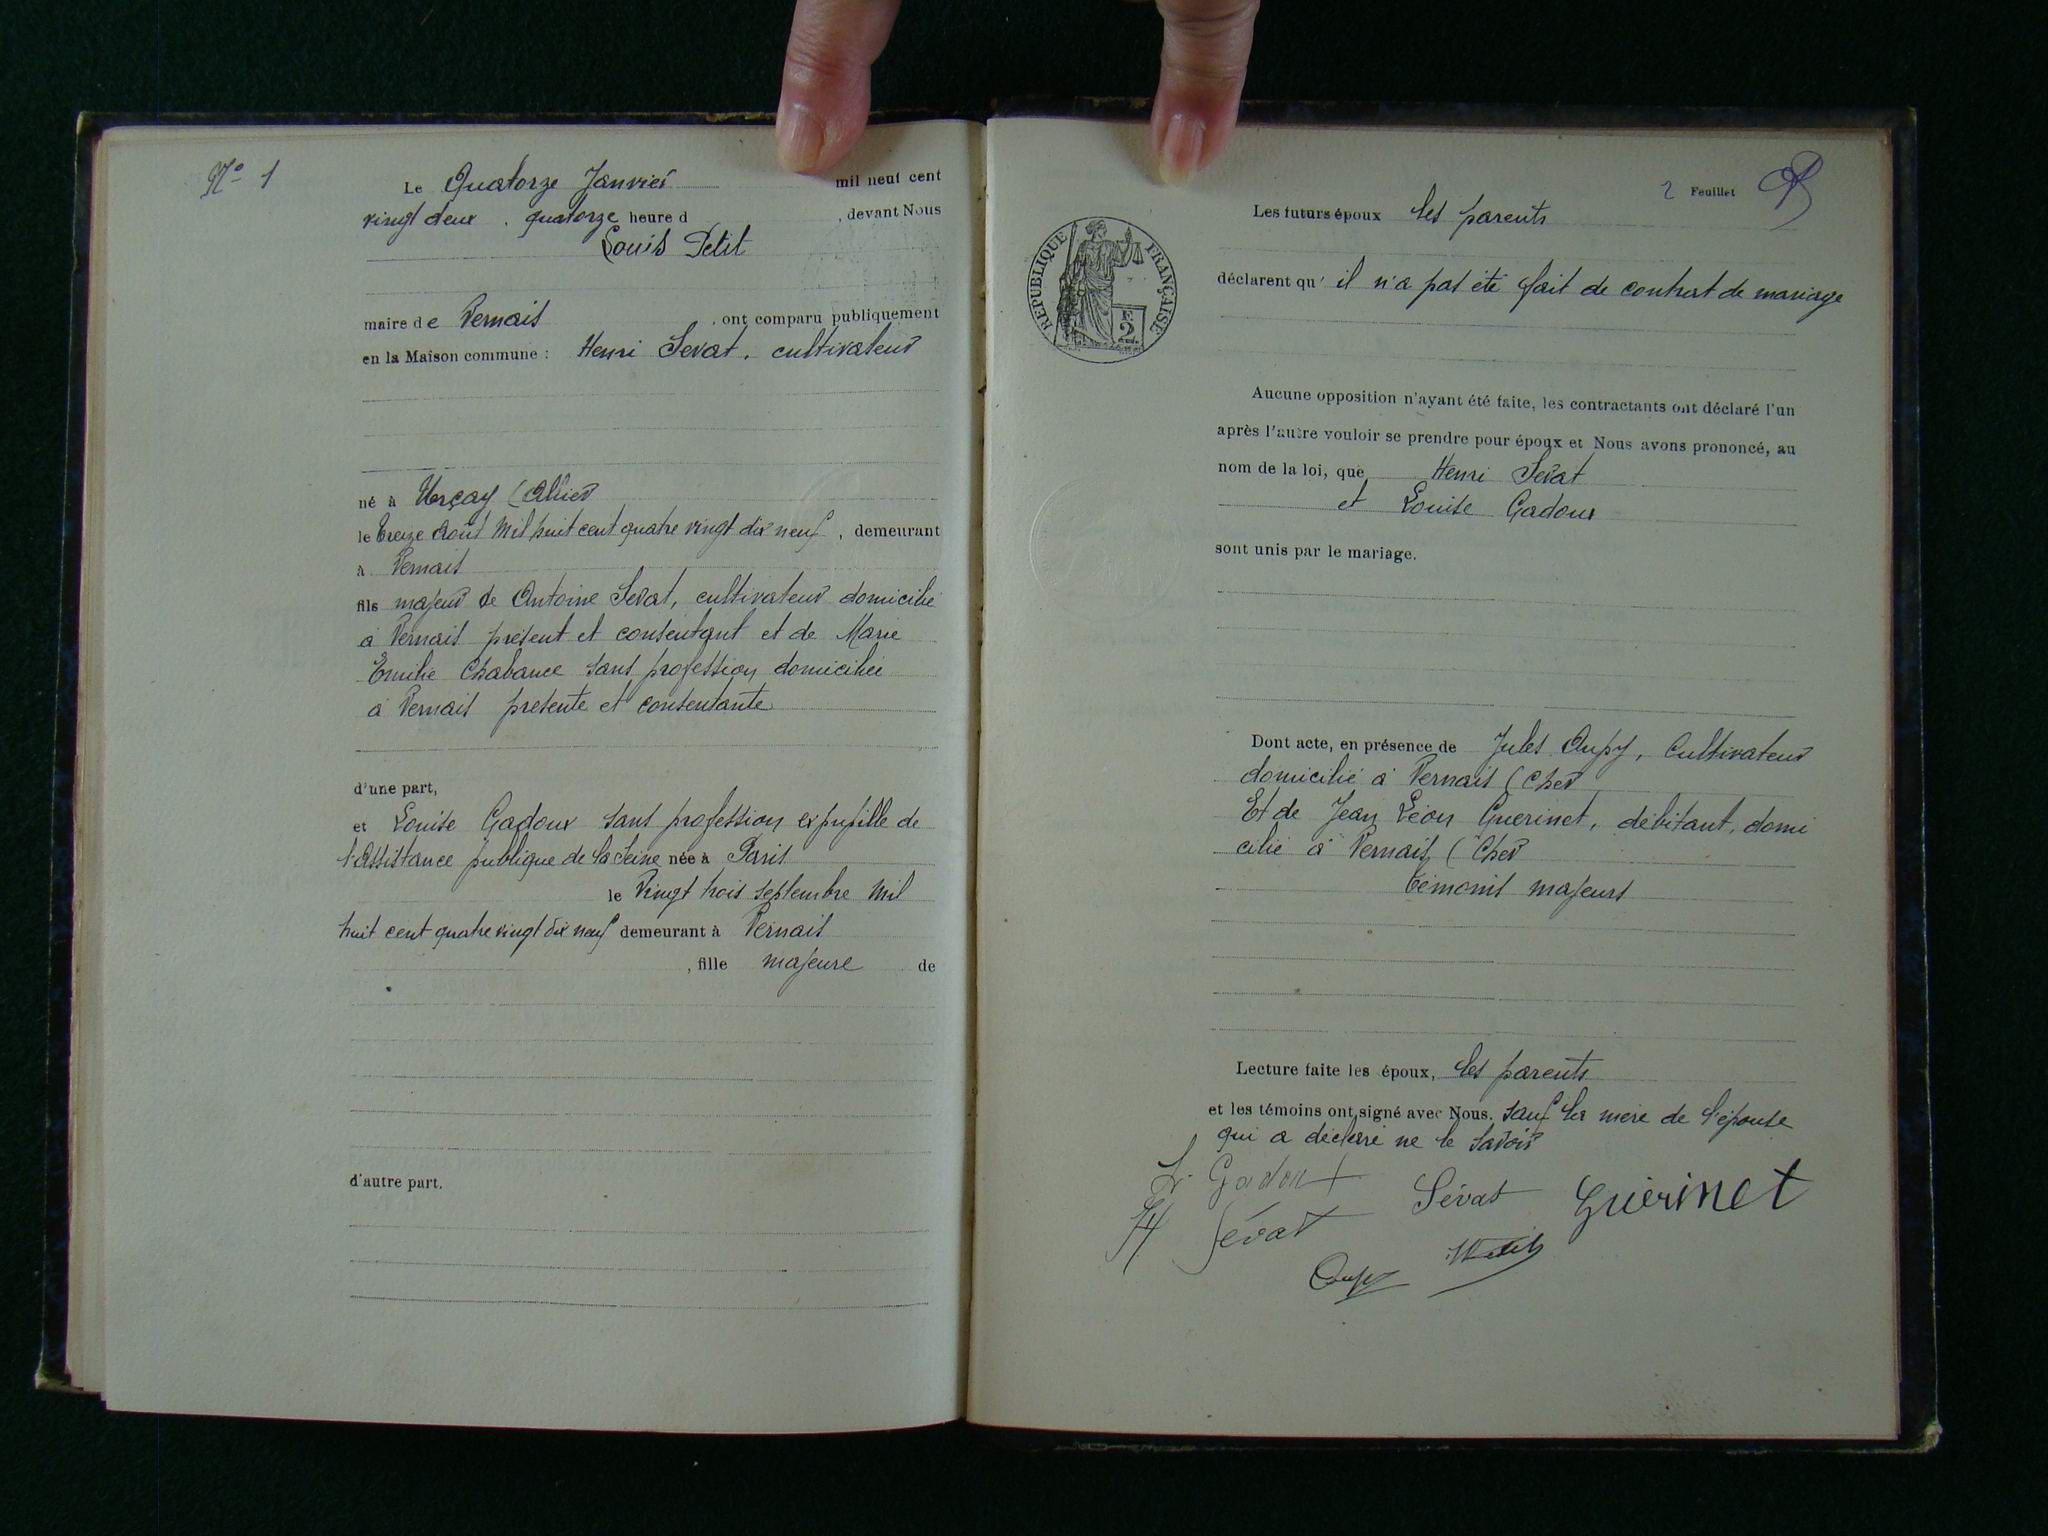 No 1
Le Quatorze Janvier mil neuf cent
vingt deux. quatorze heure d , devant Nous
Louis Petit
maire de Vernais , ont comparu publiquement
en la Maison commune : Henri Sevat, cultivateur
né à Urçay (Allier
le treize Août Mil huit cent quatre vingt dix neuf , demeurant
à Vernais
fils majeur de Antoine Sevat, cultivateur domicilié
à Vernais présent et consentant et de Marie
Emilie Chabance sans profession domiciliée
à Vernais présente et consentante
d'une part,
et Louise Gadoux sans profession ex pupille de
l'Assistance publique de la Seine née à Paris
le Vingt trois septembre Mil
huit cent quatre vingt dix neuf demeurant à Vernais
, fille majeure de
d'autre part.
2 Feuillet
Les futurs époux les parents
RÉPUBLIQUE FRANÇAISE
E
2
déclarent qu' il n'a pas été fait de contrat de mariage
Aucune opposition n'ayant été faite, les contractants ont déclaré l'un
après l'autre vouloir se prendre pour époux et Nous avons prononcé, au
nom de la loi, que Henri Sevat
et Louise Gadoux
sont unis par le mariage.
Dont acte, en présence de Jules Aupy, Cultivateur
domicilié à Vernais (Cher
Et de Jean Léon Guerinet, débitant, domi
cilié à Vernais (Cher
témoins majeurs
Lecture faite les époux, les parents
et les témoins ont signé avec Nous. sauf la mère de l'épouse
qui a déclaré ne le savoir
L. Gadoux
Sévat Guérinet
H Sévat
Aupy